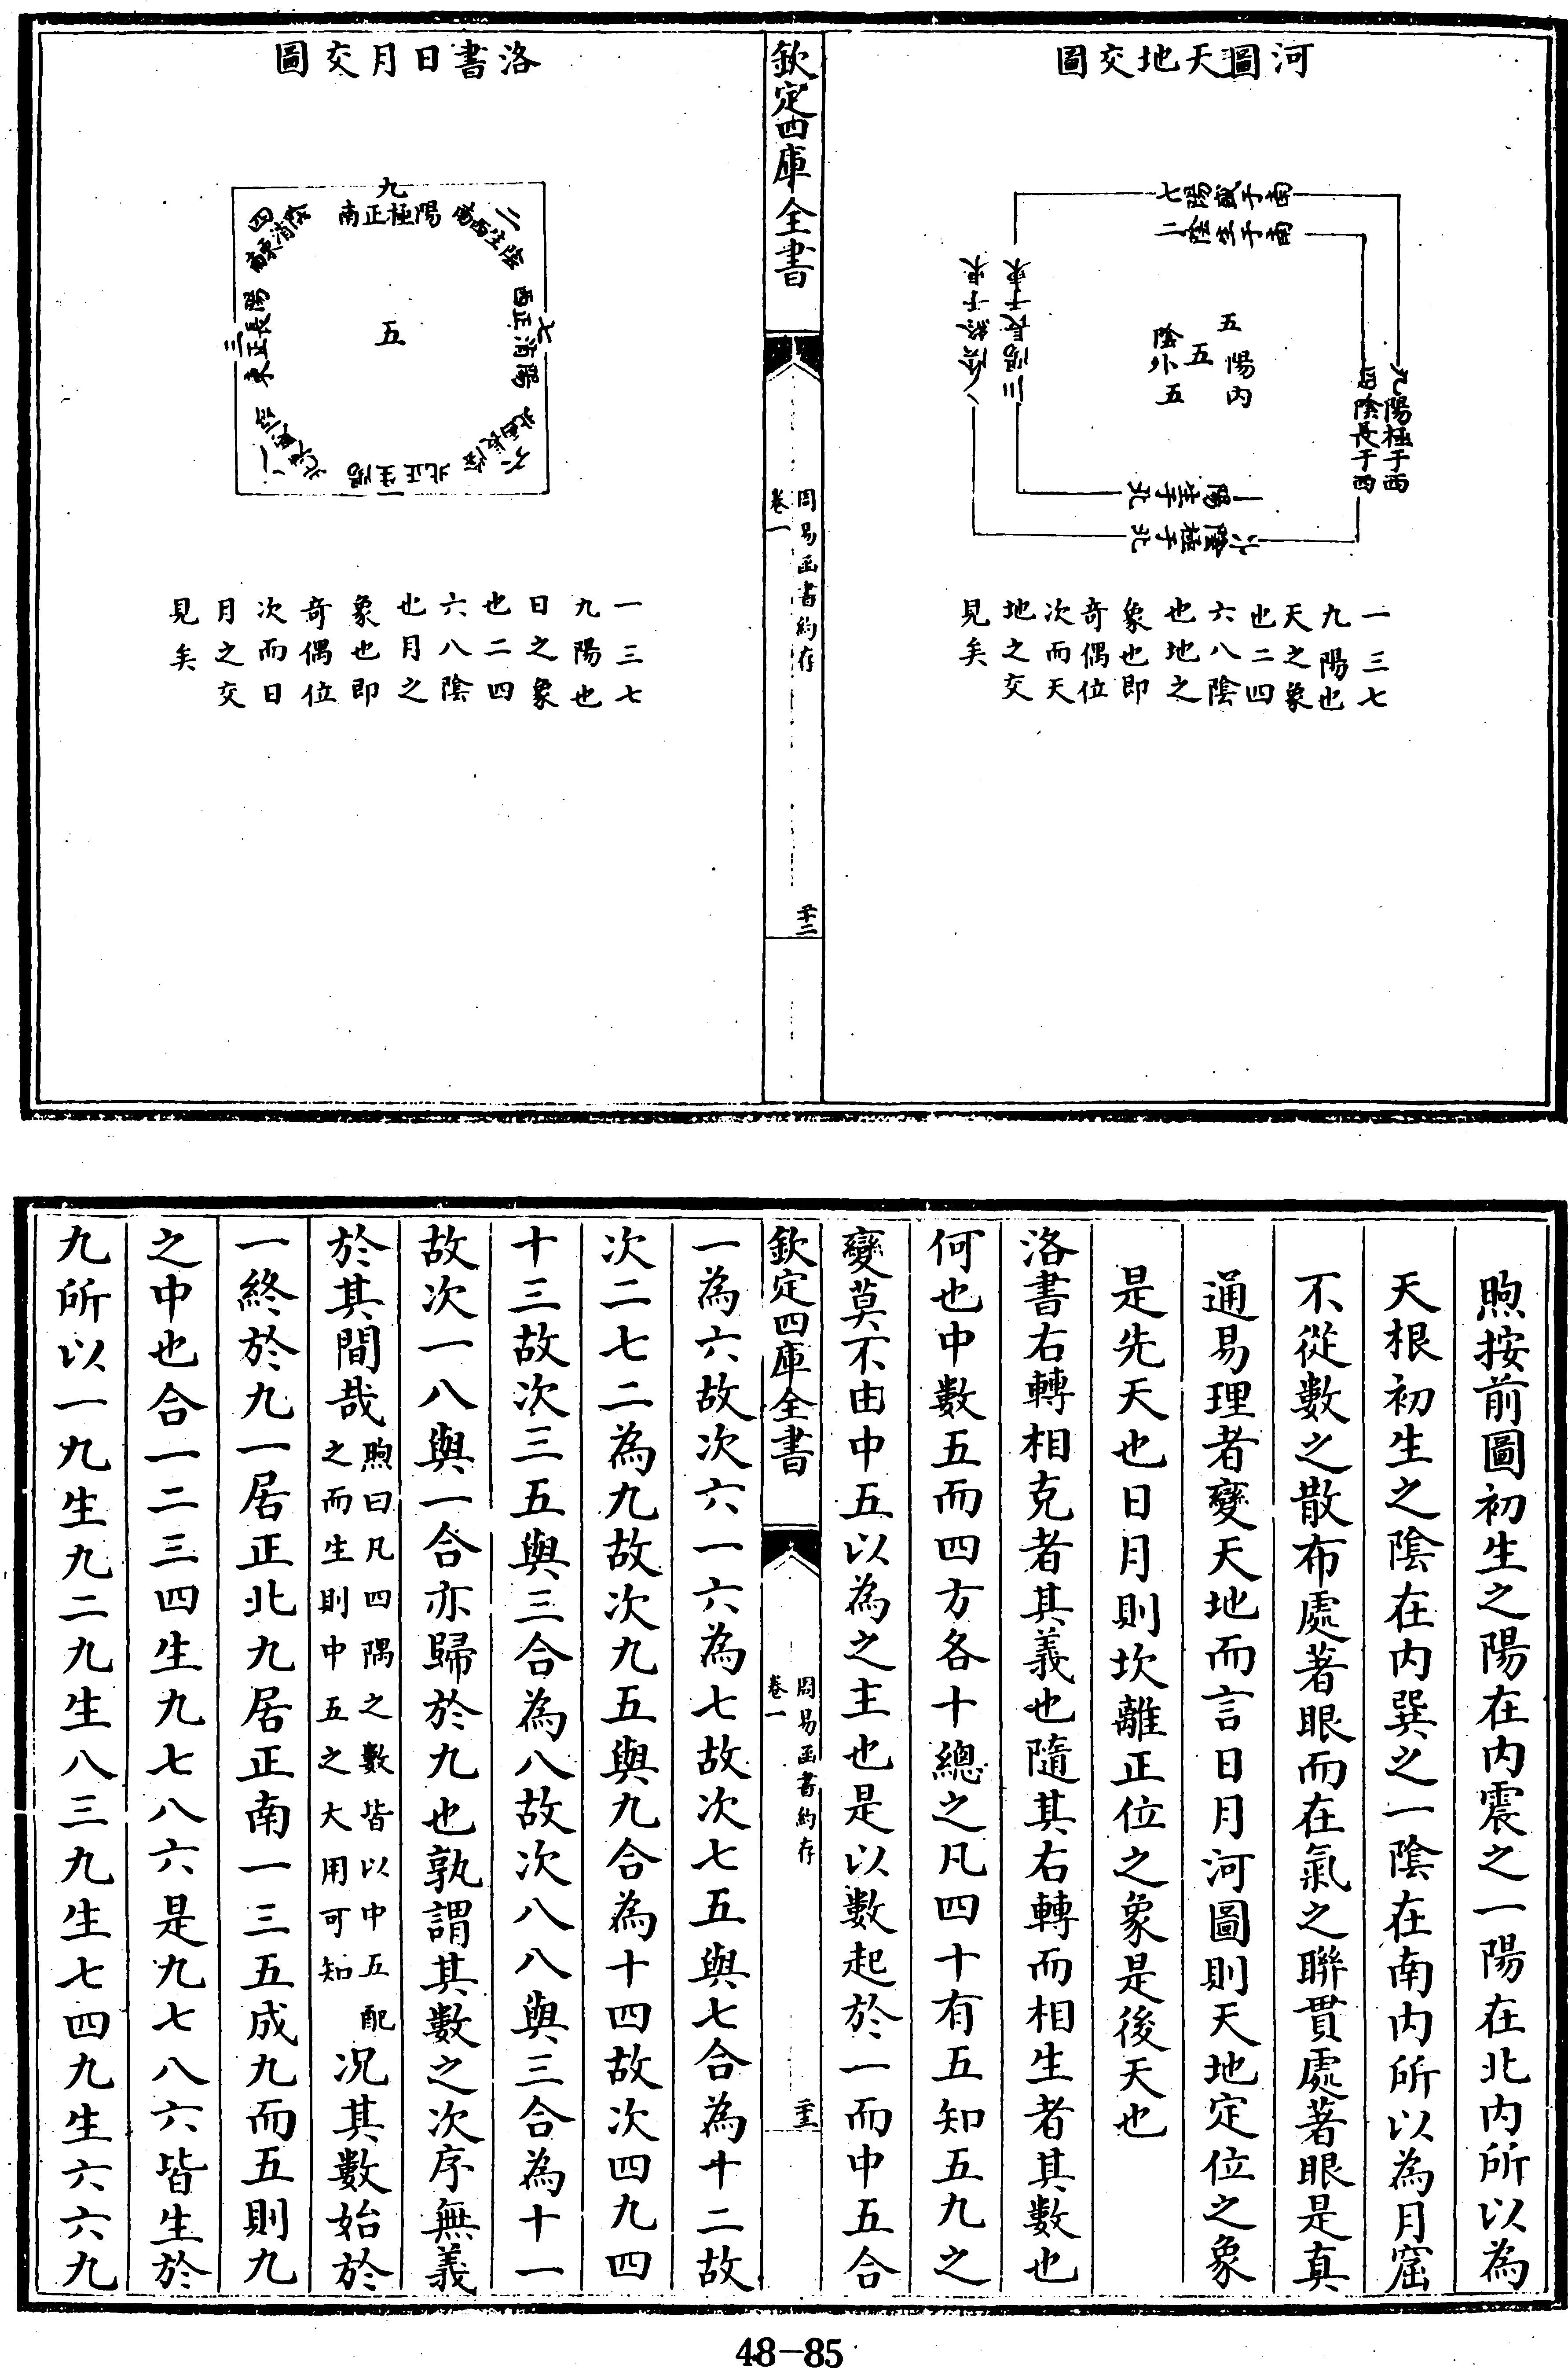 河圖天地交圖
七陽盛于南
二陰生于南
九陽極于西
四陰長于西
五
五
陽內
陰外五
三陽長于東
八陰終于東
一陽生于北
六陰極于北
一三七
九陽也
天之象
也二四
六八陰
也地之
象也即
奇偶位
次而天
地之交
見矣
欽定四庫全書
周易函書約存
卷一
二十二
洛書日月交圖
九
陽極正南
二
陰生西南
七
陽消正西
六
陰長西北
一
陽生正北
八
三
陽長正東
四
五
一三七
九陽也
日之象
也二四
六八陰
也月之
象也即
奇偶位
次而日
月之交
見矣
煦按前圖初生之陽在內震之一陽在北內所以為
天根初生之陰在內巽之一陰在南內所以為月窟
不從數之散布處著眼而在氣之聯貫處著眼是真
通易理者變天地而言日月河圖則天地定位之象
是先天也日月則坎離正位之象是後天也
洛書右轉相克者其義也隨其右轉而相生者其數也
何也中數五而四方各十總之凡四十有五知五九之
變莫不由中五以為之主也是以數起於一而中五合
欽定四庫全書
周易函書約存
卷一
二十三
一為六故次六一六為七故次七五與七合為十二故
次二七二為九故次九五與九合為十四故次四九四
十三故次三五與三合為八故次八八與三合為十一
故次一八與一合亦歸於九也孰謂其數之次序無義
於其間哉煦曰凡四隅之數皆以中五配之而生則中五之大用可知況其數始於
一終於九一居正北九居正南一三五成九而五則九
之中也合一二三四生九七八六是九七八六皆生於
九所以一九生九二九生八三九生七四九生六六九
48-85